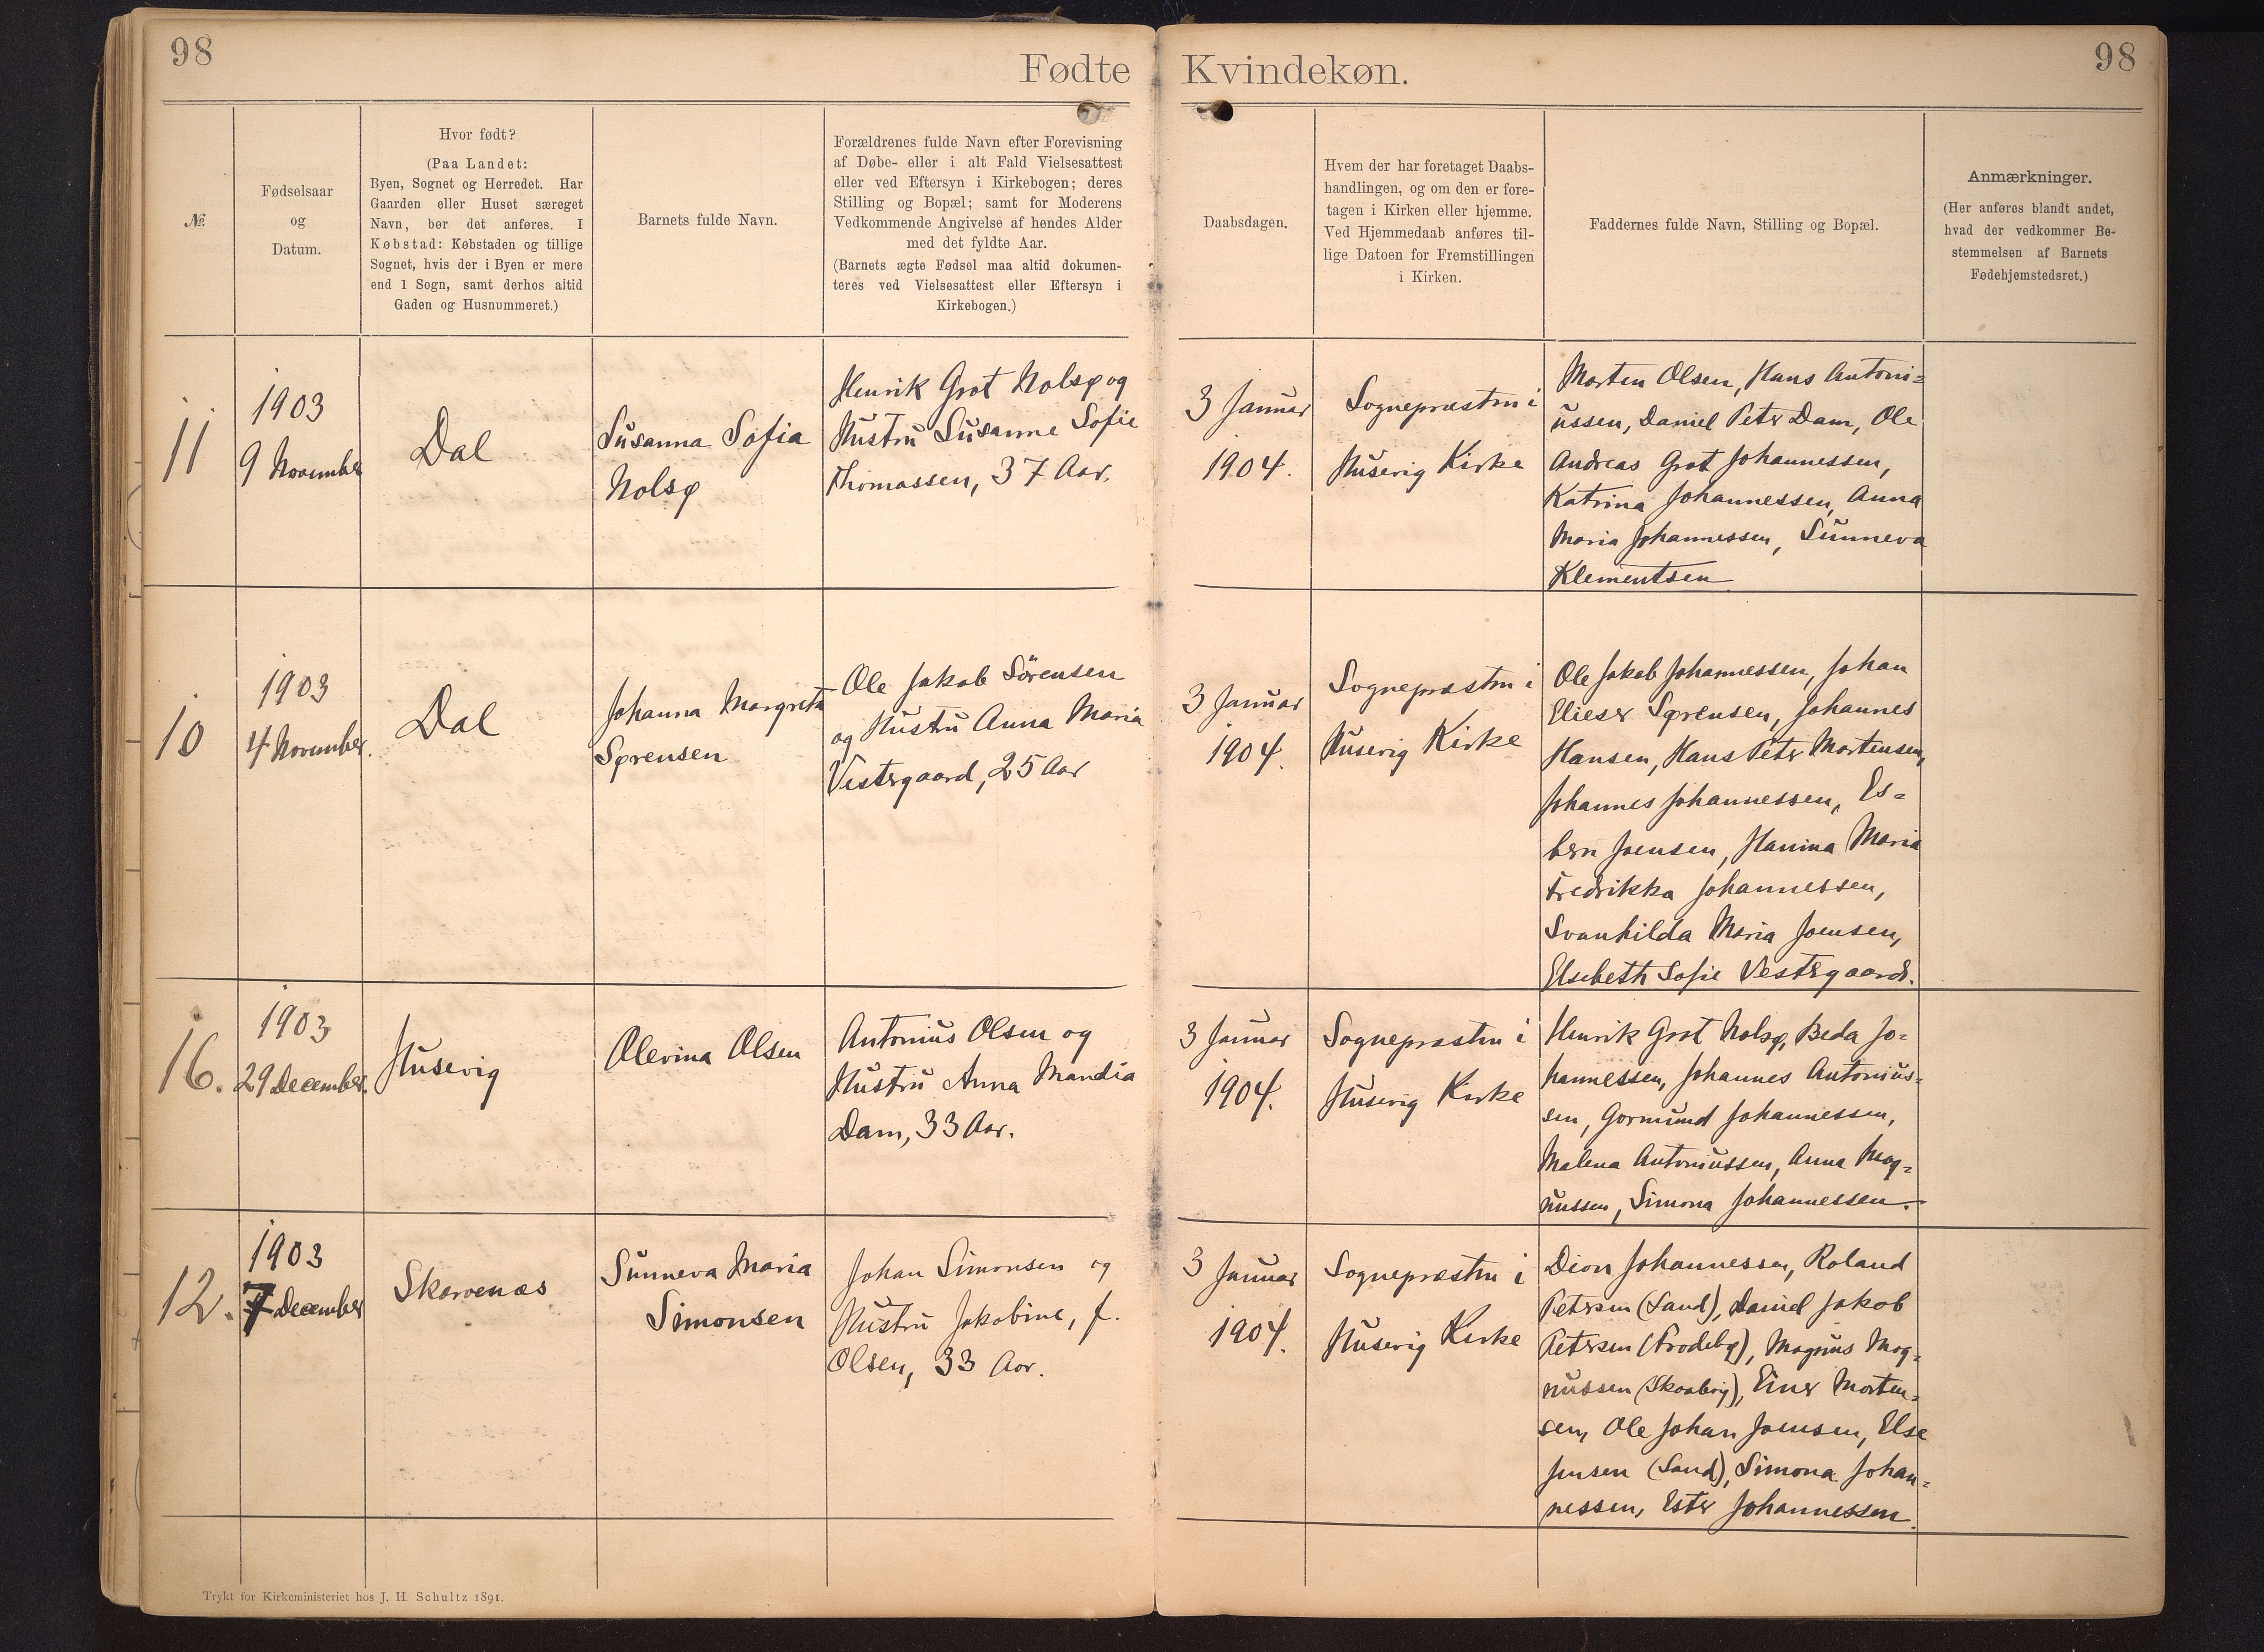 98
Fødte Kvindekøn.
98
№
Fødselsaar
og
Datum.
Hvor født?
(Paa Landet:
Byen, Sognet og Herredet. Har
Gaarden eller Huset særeget
Navn, bør det anføres. I
Købstad: Købstaden og tillige
Sognet, hvis der i Byen er mere
end 1 Sogn, samt derhos altid
Gaden og Husnummeret.)
Barnets fulde Navn.
Forældrenes fulde Navn efter Forevisning
af Døbe- eller i alt Fald Vielsesattest
eller ved Eftersyn i Kirkebogen; deres
Stilling og Bopæl; samt for Moderens
Vedkommende Angivelse af hendes Alder
med det fyldte Aar.
(Barnets ægte Fødsel maa altid dokumen-
teres ved Vielsesattest eller Eftersyn i
Kirkebogen.)
Daabsdagen.
Hvem der har foretaget Daabs-
handlingen, og om den er fore-
tagen i Kirken eller hjemme.
Ved Hjemmedaab anføres til-
lige Datoen for Fremstillingen
i Kirken.
Faddernes fulde Navn, Stilling og Bopæl.
Anmærkninger.
(Her anføres blandt andet,
hvad der vedkommer Be-
stemmelsen af Barnets
Fødehjemstedsret.)
11
1903
9 November
Dal
Susanna Sofia
Nolsø
Henrik Grot Nolsø og
Hustru Susanne Sofie
Thomassen, 37 Aar.
3 Januar
1904.
Sognepræsten i
Husevig Kirke
Morten Olsen, Hans Antoni=
ussen, Daniel Peter Dam, Ole
Andreas Grot Johannessen,
Katrina Johannessen, Anna
Maria Johannessen, Sunneva
Klementsen
10
1903
4 November.
Dal
Johanna Margreta
Sørensen
Ole Jakob Sörensen
og Hustru Anna Maria
Vestergaard, 25 Aar
3 Januar
1904.
Sognepræsten i
Husevig Kirke
Ole Jakob Johannessen, Johan
Elieser Sørensen, Johannes
Hansen, Hans Peter Mortensen,
Johannes Johannessen, Es=
bern Joensen, Hanina Maria
Fredrikka Johannessen,
Svanhilda Maria Joensen,
Elsebeth Sofie Vestergaard.
16.
1903
29 December.
Husevig
Olevina Olsen
Antonius Olsen og
Hustru Anna Mandia
Dam, 33 Aar.
3 Januar
1904.
Sognepræsten i
Husevig Kirke
Henrik Grot Nolsø, Beda Jo=
hannessen, Johannes Antonius=
sen, Gormund Johannessen,
Malena Antoniussen, Anna Mag=
nussen, Simona Johannessen.
12.
1903
7 December
Skarvenæs
Sunneva Maria
Simonsen
Johan Simonsen og
Hustru Jakobine, f.
Olsen, 33 Aar.
3 Januar
1904.
Sognepræsten i
Husevig Kirke
Dion Johannessen, Roland
Petersen (Sand), Daniel Jakob
Petersen (Frodebø), Magnus Mag=
nussen (Skaalevig), Einer Morten=
sen, Ole Johan Joensen, Else
Jensen (Sand), Simona Johan=
nessen, Ester Johannessen.
Trykt for Kirkeministeriet hos J. H. Schultz 1891.